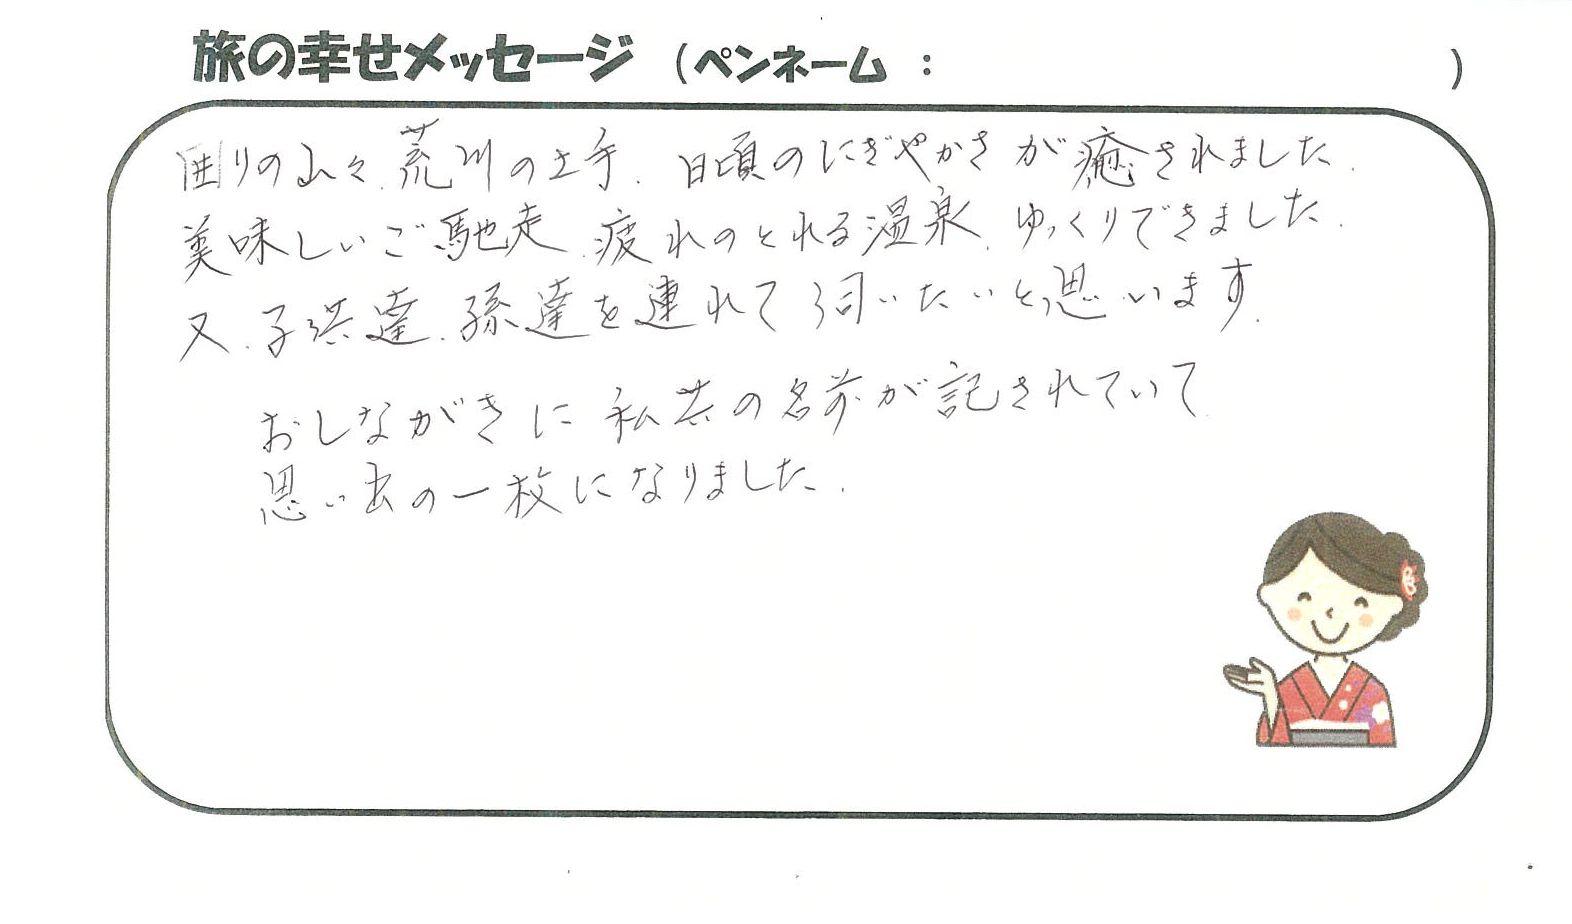 旅の幸せメッセージ （ペンネーム ： ）
囲りの山々、荒川の土手、日頃のにぎやかさが癒されました、
美味しいご馳走、疲れのとれる温泉、ゆっくりできました、
又、子供達、孫達を連れて伺いたいと思います、
おしながきに私共の名前が記されていて
思い出の一枚になりました、